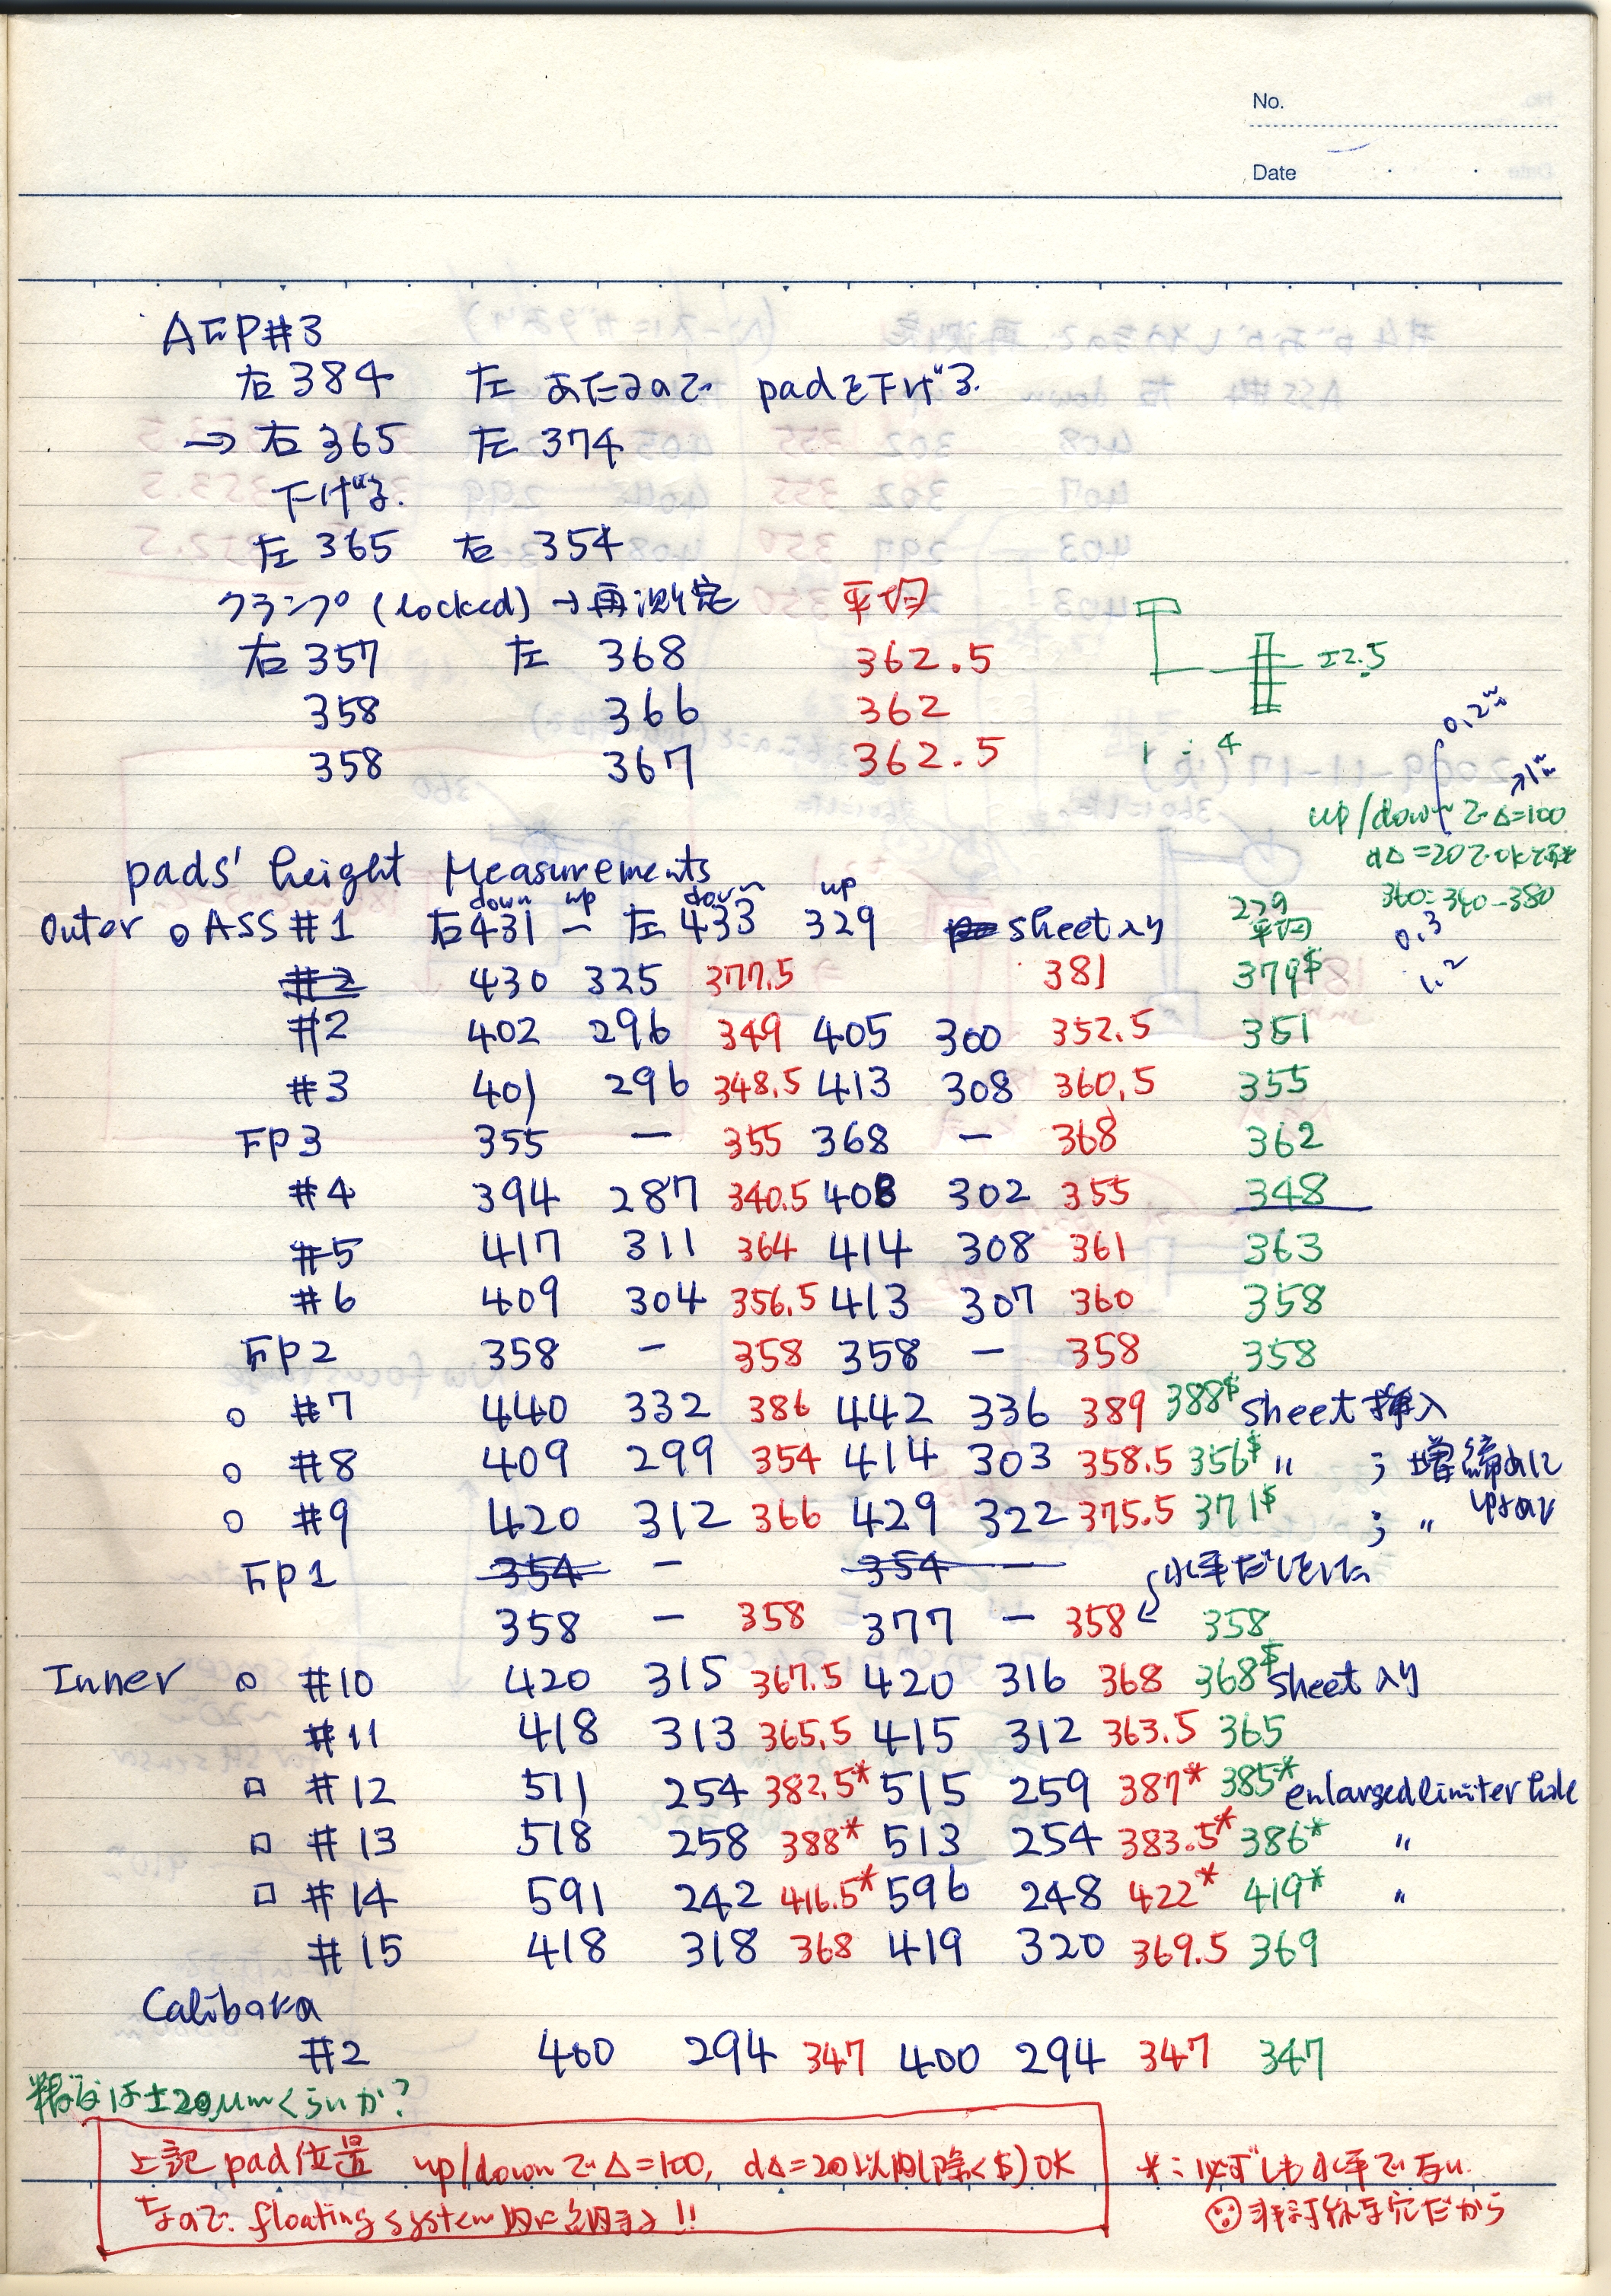 No.
Date
AFP#3
右 384 左 あたるので padを下げる.
→ 右 365 左 374
下げる.
左 365 右 354
クランプ (locked) → 再測定 平均
右 357 左 368 362.5
358 366 362
358 367 362.5
±2.5
1 : 4
0.2
up/down で Δ=100
dΔ=20でok
360: 340-380
0.3
1.2
pads' height Measurements
down up down up
Outer ○ ASS #1 右 431 — 左 433 329 sheet入り 平均
#2 430 325 377.5 381 379$
#2 402 296 349 405 300 352.5 351
#3 401 296 348.5 413 308 360.5 355
FP3 355 — 355 368 — 368 362
#4 394 287 340.5 408 302 355 348
#5 417 311 364 414 308 361 363
#6 409 304 356.5 413 307 360 358
FP2 358 — 358 358 — 358 358
○ #7 440 332 386 442 336 389 388$ sheet 挿入
○ #8 409 299 354 414 303 358.5 356$ 〃 ; 増締めに
○ #9 420 312 366 429 322 375.5 371$ ; 〃
FP1 354 — 354 —
水平だしをした
358 — 358 377 — 358 358
Inner ○ #10 420 315 367.5 420 316 368 368$ sheet 入り
#11 418 313 365.5 415 312 363.5 365
□ #12 511 254 382.5* 515 259 387* 385* enlarged limiter hole
□ #13 518 258 388* 513 254 383.5* 386* 〃
□ #14 591 242 416.5* 596 248 422* 419* 〃
#15 418 318 368 419 320 369.5 369
Calibara
#2 400 294 347 400 294 347 347
精度は±20μmくらいか?
上記 pad位置 up/downで Δ=100, dΔ=20以内(除く$) OK
なので. floating system内に納まる!!
*: 必ずしも水平でない.
非対称な穴だから